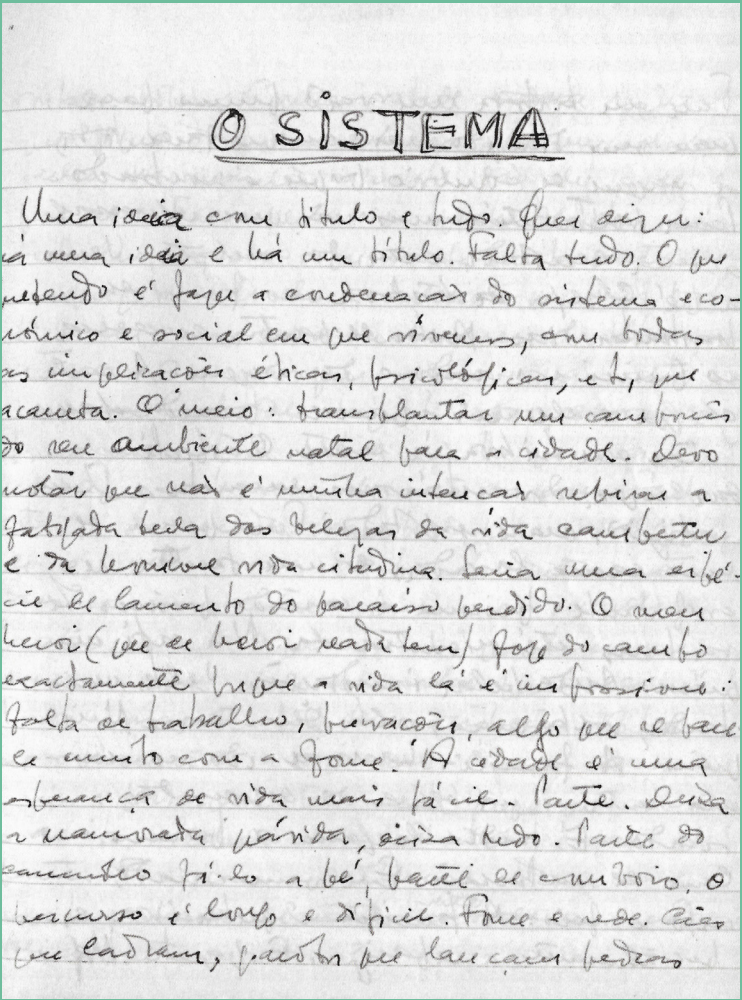 O SISTEMA
Uma ideia com título e tudo. Quer dizer:
á uma ideia e há um título. Falta tudo. O que
retendo é fazer a condenação do sistema eco-
nómico e social em que vivemos, com todas
as implicações éticas, psicológicas, etc, que
acarreta. O meio: transplantar um camponês
do seu ambiente natal para a cidade. Devo
notar que não é minha intenção rebisar a
fatigada tecla das belezas da vida campestre
e da horrível vida citadina. Seria uma espé-
cie de lamento do paraíso perdido. O meu
herói (que de herói nada tem) foge do campo
exactamente porque a vida lá é impossível:
falta de trabalho, privações, algo que se pare
ce muito com a fome. A cidade é uma
esperança de vida mais fácil. Parte. Deixa
a namorada grávida, deixa tudo. Parte do
caminho fá-lo a pé, parte de comboio. O
percurso é longo e difícil. Fome e sede. Cães
que ladram, garotos que lançam pedras